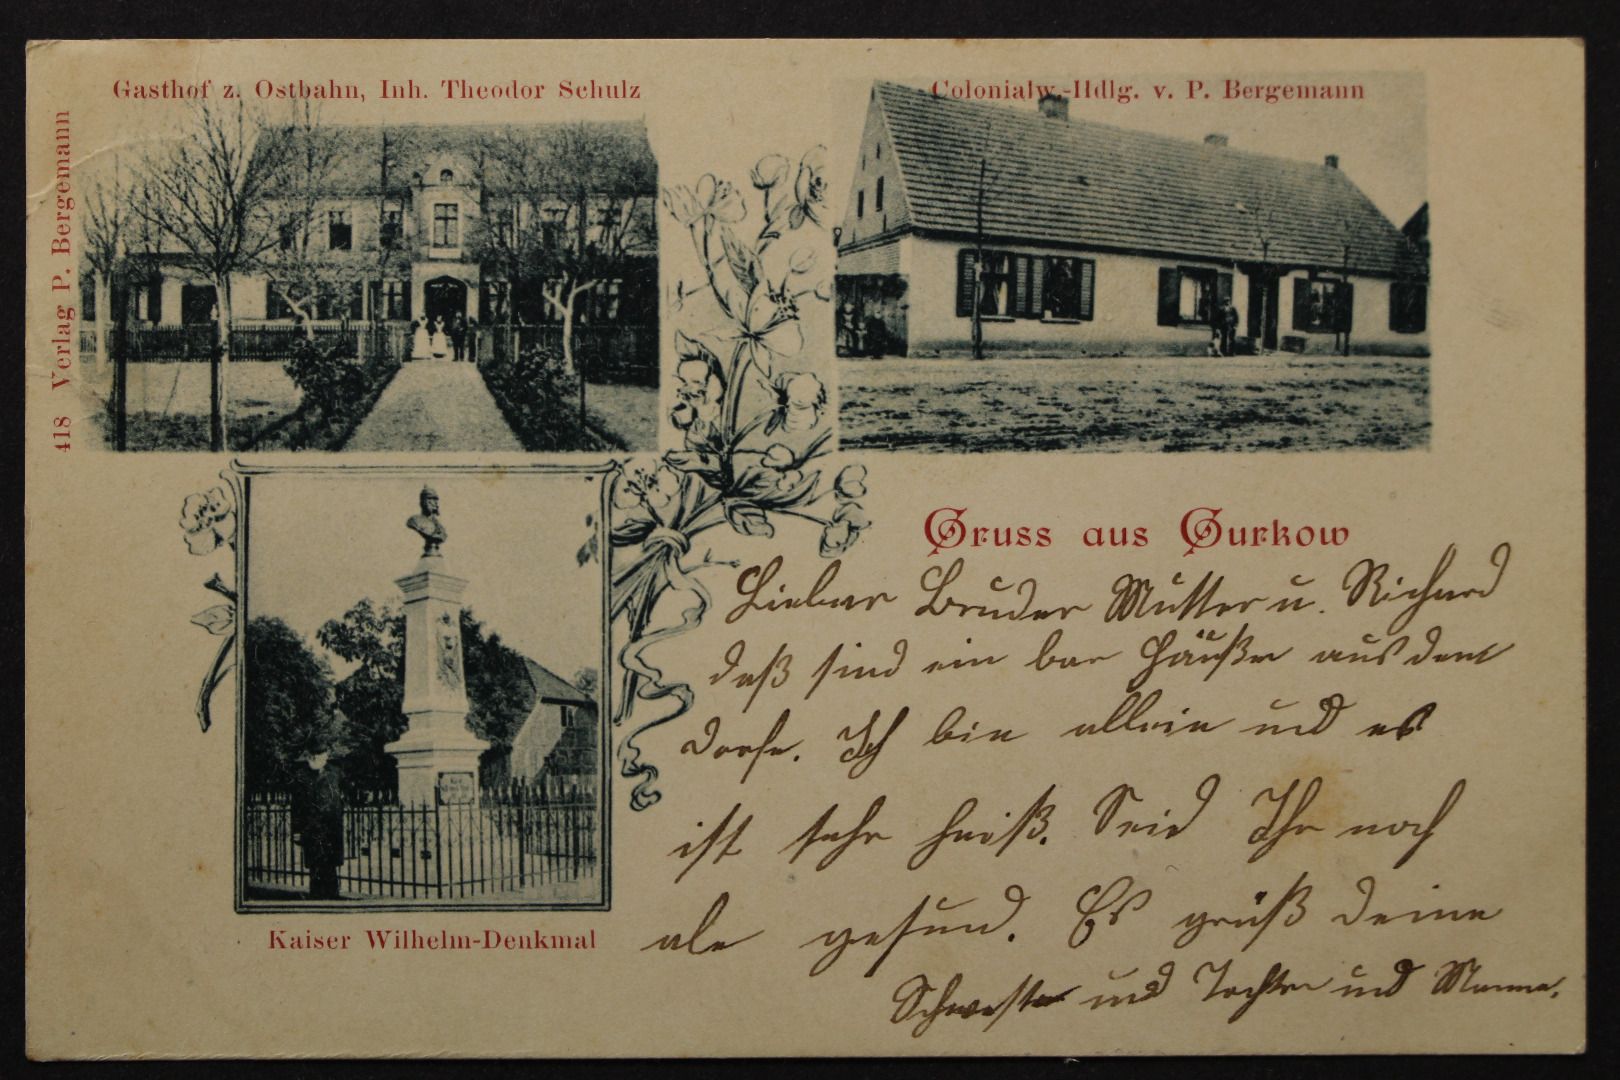 Gasthof z. Ostbahn, Inh. Theodor Schulz
Colonialw.-Hdlg. v. P. Bergemann
418 Verlag P. Bergemann
Gruss aus Gurkow
Lieber Bruder Mutter u. Richard
daß sind ein bar Häußer aus dem
Dorfe. Ich bin allein und es
ist sehr heiß. Seid Ihr noch
ale gesund. Es grüß deine
Schwester und Tochter und
Kaiser Wilhelm-Denkmal